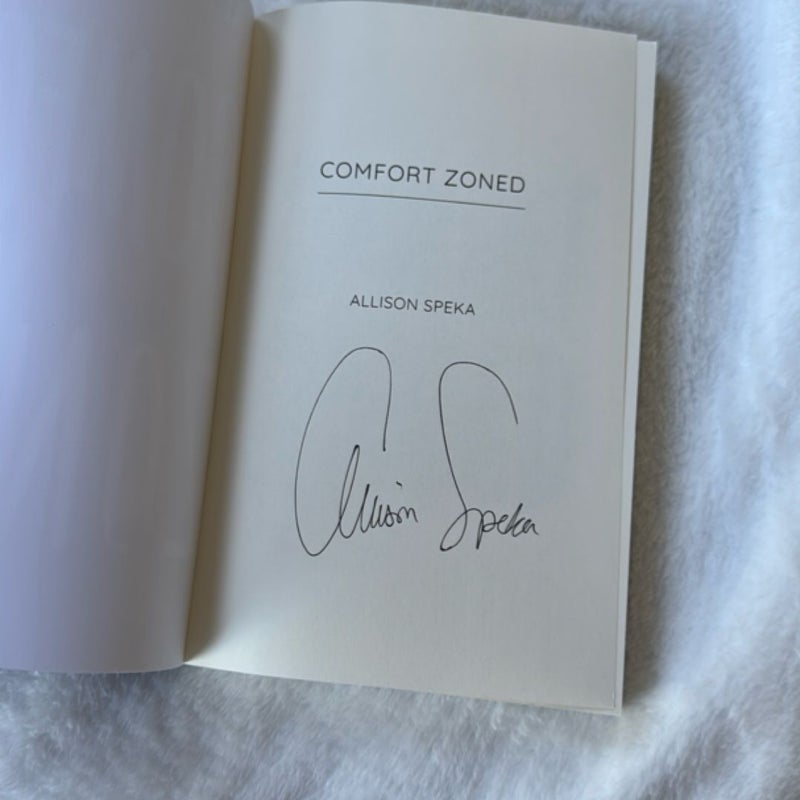 COMFORT ZONED
ALLISON SPEKA
Allison Speka